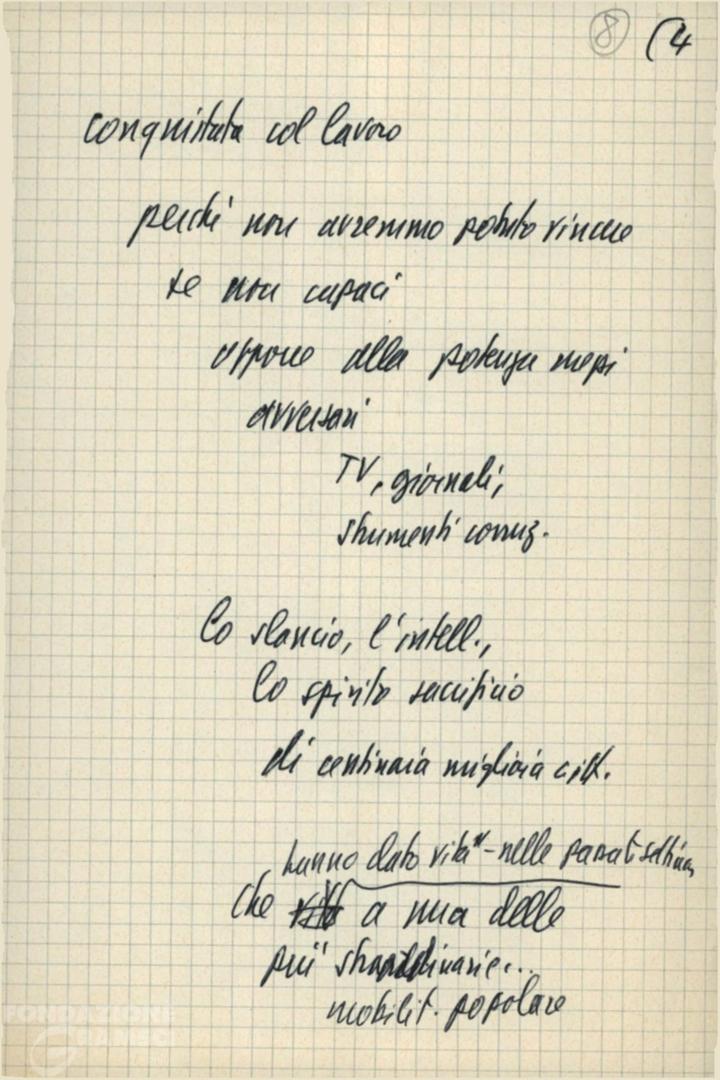 8 (4
conquistata col lavoro
perché non avremmo potuto vincere
se non capaci
opporre alla potenza mezzi
avversari
TV, giornali,
strumenti corruz.
Lo slancio, l'intell.,
lo spirito sacrificio
di centinaia migliaia citt.
hanno dato vita - nelle passate settiman
che a una delle
più straordinarie...
mobilit. popolare
FONDAZIONE
GRAMSCI